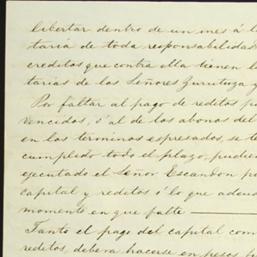 libertar dentro de un mes á l
taria de toda responsabilidad
creditos que contra ella tienen l
tarias de los Señores Zurutuza y
Por faltar al pago de reditos p
vencidos, ó al de los abonos del
en los terminos espresados, se t
cumplido todo el plazo, pudien
ejecutado el Señor Escandon p
capital y reditos ó lo que adeud
momento en que falte
Tanto el pago del capital com
reditos, debera hacerse en pesos f